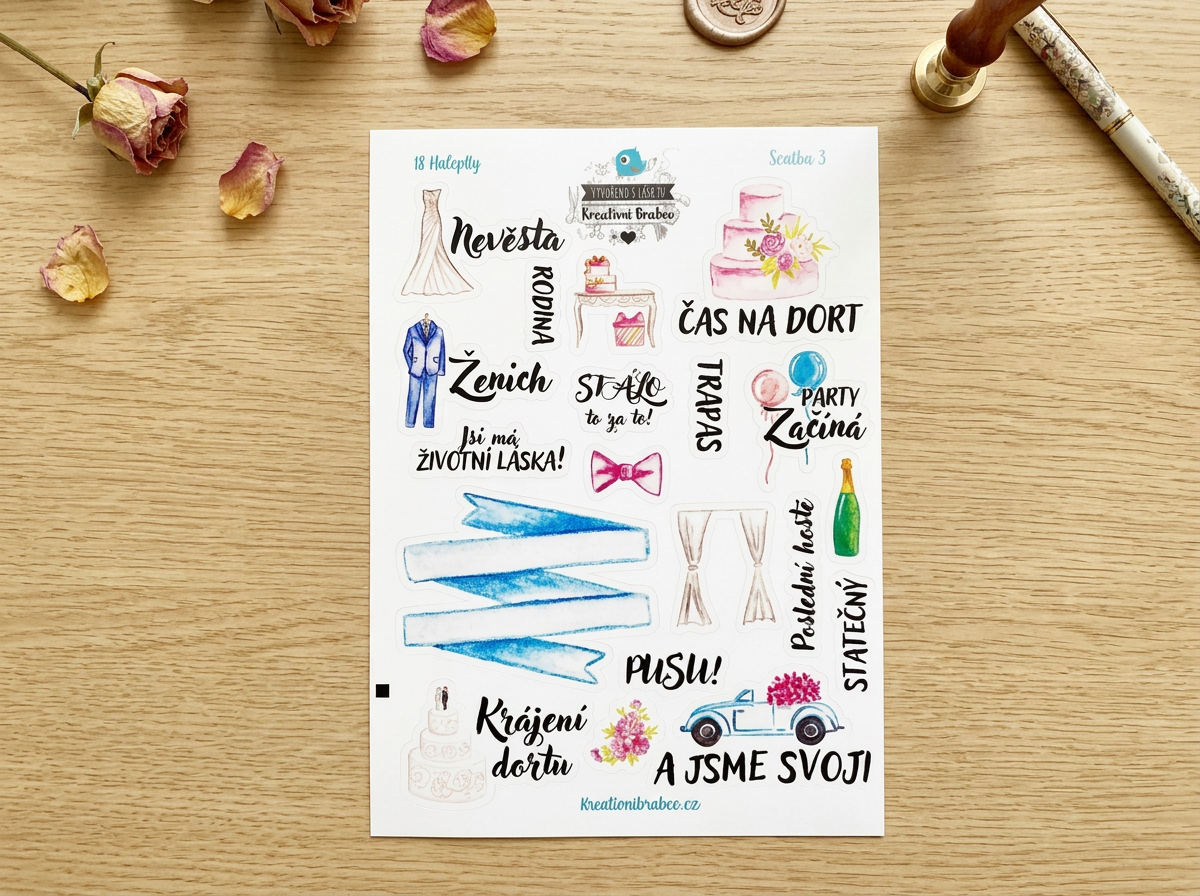 18 Haleptly
Seatba 3
VYTVOŘENO S LÁSKTU
Kreativní Brabeo
Nevěsta
RODINA
ČAS NA DORT
Ženich
STÁLO
to za to!
TRAPAS
PARTY
Začíná
Jsi má
ŽIVOTNÍ LÁSKA!
Poslední hosté
STATEČNÝ
PUSU!
Krájení
dortu
A JSME SVOJI
Kreationibrabee.cz